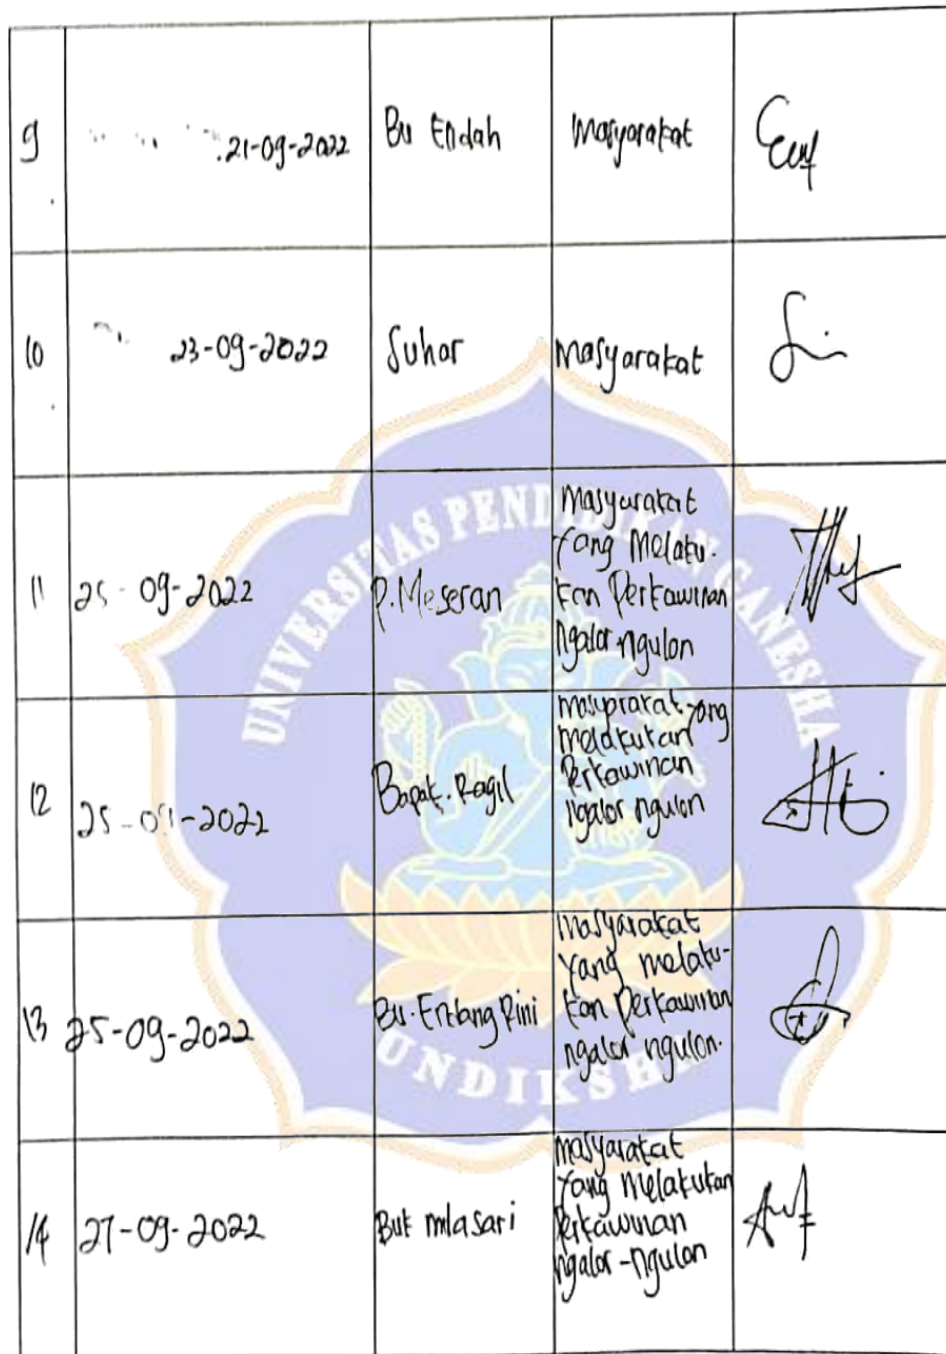 9 21-09-2022 Bu Endah Masyarakat
10 23-09-2022 Suhar Masyarakat
11 25-09-2022 P.Meseran Masyarakat
yang Melaku-
kan Perkawinan
ngalor ngulon
12 25-09-2022 Bapak.Ragil Masyarakat yang
melakukan
Perkawinan
ngalor ngulon
13 25-09-2022 Bu.Endang Rini Masyarakat
yang melaku-
kan Perkawinan
ngalor ngulon.
14 27-09-2022 Masyarakat
yang Melakukan
Perkawinan
ngalor-ngulon
UNIVERSITAS PENDIDIKAN GANESHA
UNDIKSHA